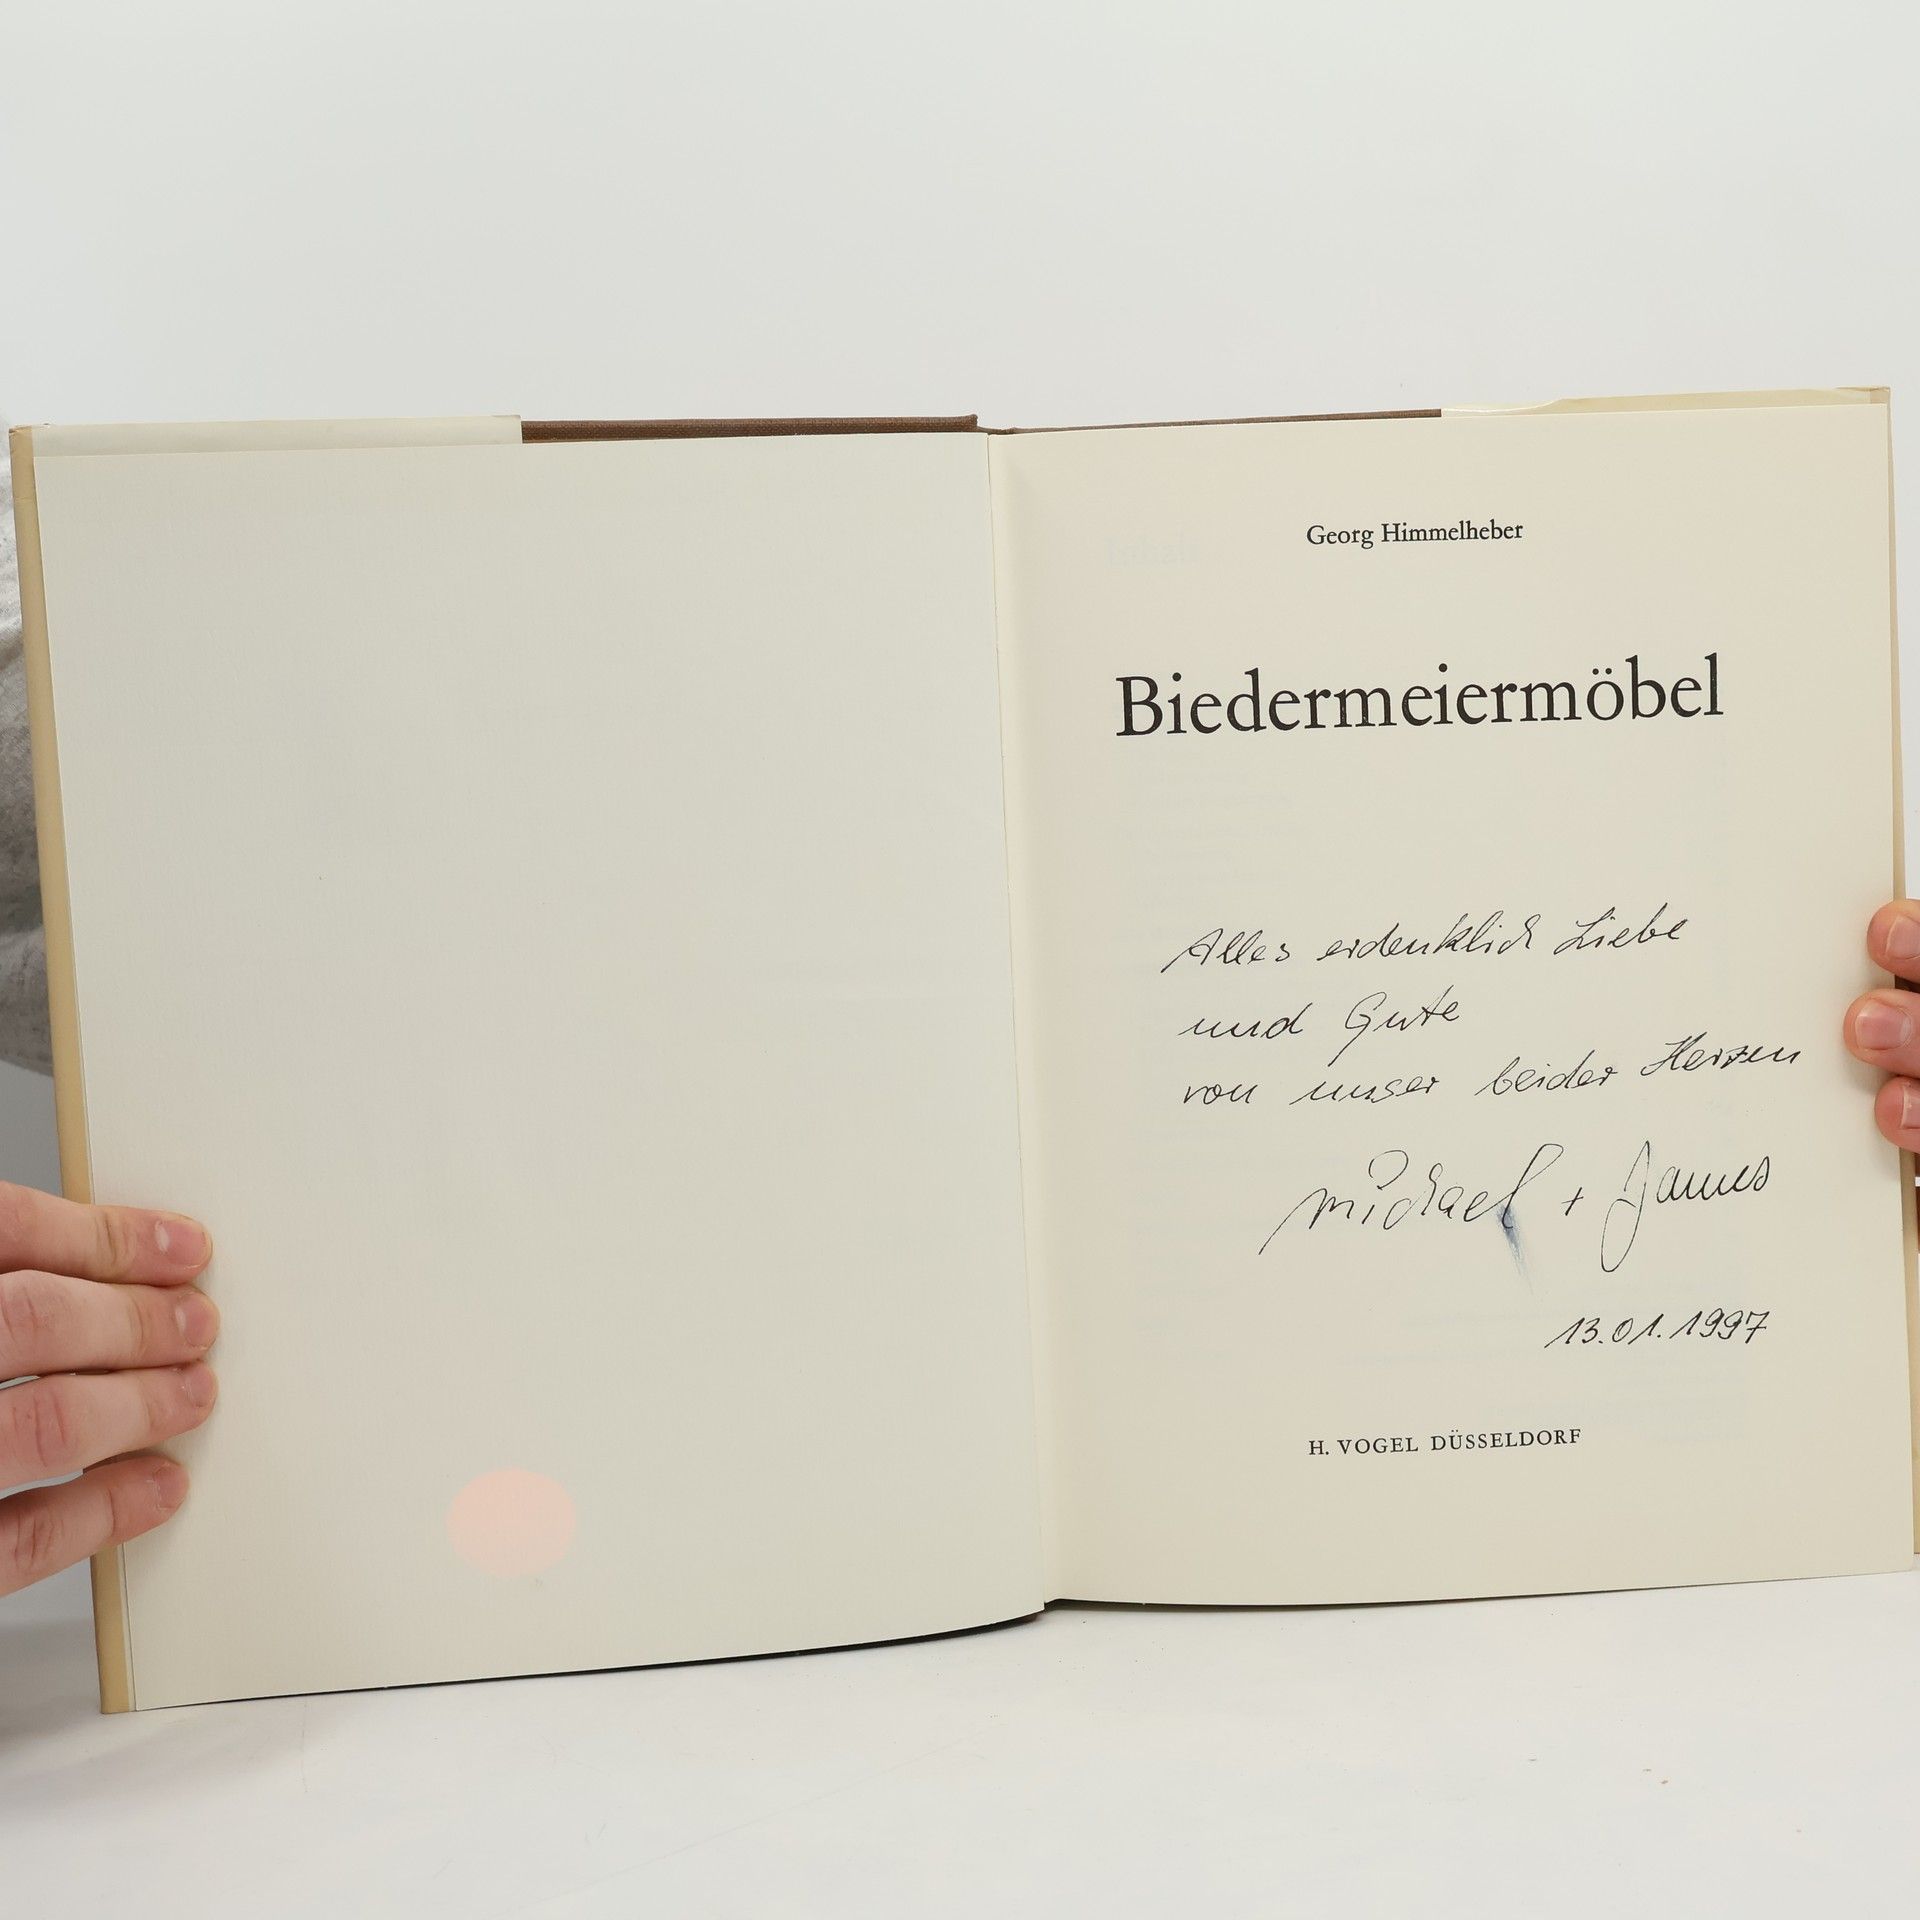 Georg Himmelheber
Biedermeiermöbel
Alles erdenklich Liebe
und Gute
von unser beider Herzen
Michael + James
13.01.1997
H. VOGEL DÜSSELDORF